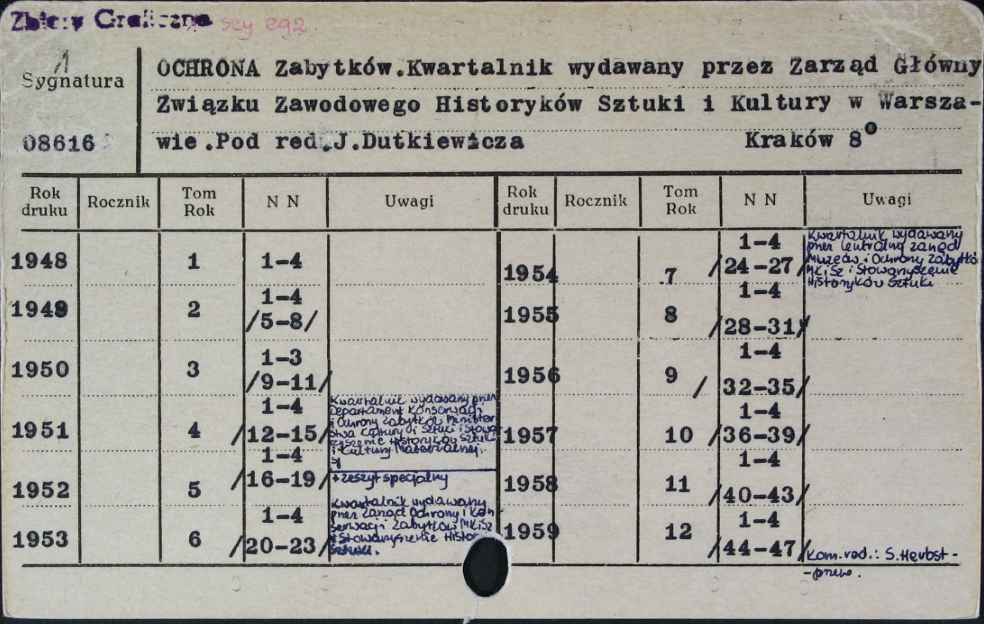 Zbiory Graficzne szy egz.
1
Sygnatura
08616
OCHRONA Zabytków.Kwartalnik wydawany przez Zarząd Główny
Związku Zawodowego Historyków Sztuki i Kultury w Warsza-
wie.Pod red.J.Dutkiewicza Kraków 8°
Rok druku Rocznik Tom Rok N N Uwagi Rok druku Rocznik Tom Rok N N Uwagi
1948 1 1-4
1949 2 1-4 /5-8/
1950 3 1-3 /9-11/
1951 4 1-4 /12-15/
Kwartalnik wydawany przez
Departament Konserwacji
i Ochrony Zabytków Minister
stwa Kultury i Sztuki i Stowa
rzyszenie Historyków Sztuki
i Kultury Materialnej.
1952 5 1-4 /16-19/
+ zeszyt specjalny
1953 6 1-4 /20-23/
Kwartalnik wydawany
przez Zarząd Ochrony i Kon
serwacji Zabytków MKiSz
i Stowarzyszenie Histor.
Sztuki.
1954 7 1-4 /24-27/
Kwartalnik wydawany
przez Centralny Zarząd
Muzeów i Ochrony Zabytkó
MKiSz i Stowarzyszenie
Historyków Sztuki
1955 8 1-4 /28-31/
1956 9 1-4 / 32-35/
1957 10 1-4 /36-39/
1958 11 1-4 /40-43/
1959 12 1-4 /44-47/
Kom.red.: S.Herbst-
-przew.